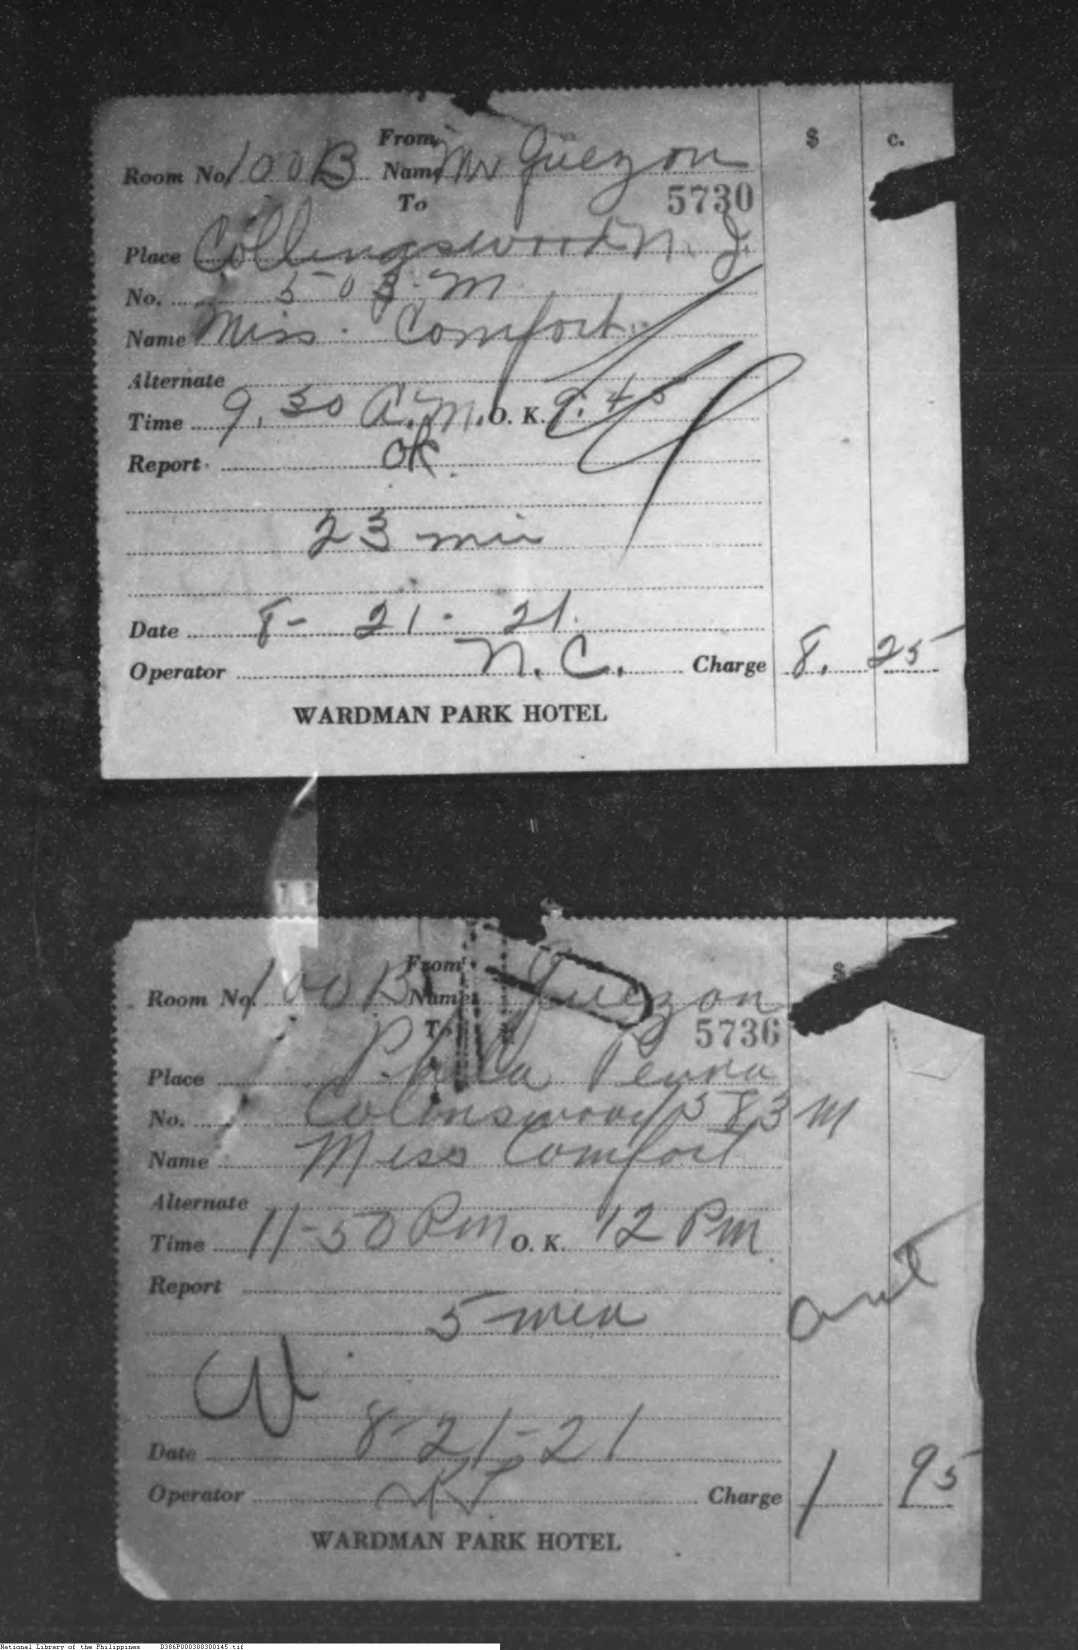 $ c.
From
Room No. 100B Name Mr Quezon
To 5730
Place Collingswood N. J.
No. 503-M
Name Miss Comfort
Alternate
Time 9.30 A.M. O. K. 9.45
Report OK
23 min
Date 8-21-21
Operator N. C. Charge 8. 25
WARDMAN PARK HOTEL
From $
Room No. 100B Name Quezon
To 5736
Place Phila Penna
No. Colinswood 583M
Name Miss Comfort
Alternate
Time 11-50 PM O. K. 12 PM
Report
5 min
Date 8-21-21
Operator Charge 1 95
WARDMAN PARK HOTEL
National Library of the Philippines D386P000300300145.tif